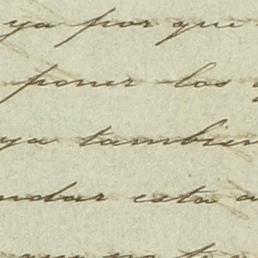 ya por que
poner los
ya tambien
ndar esta a
que no te